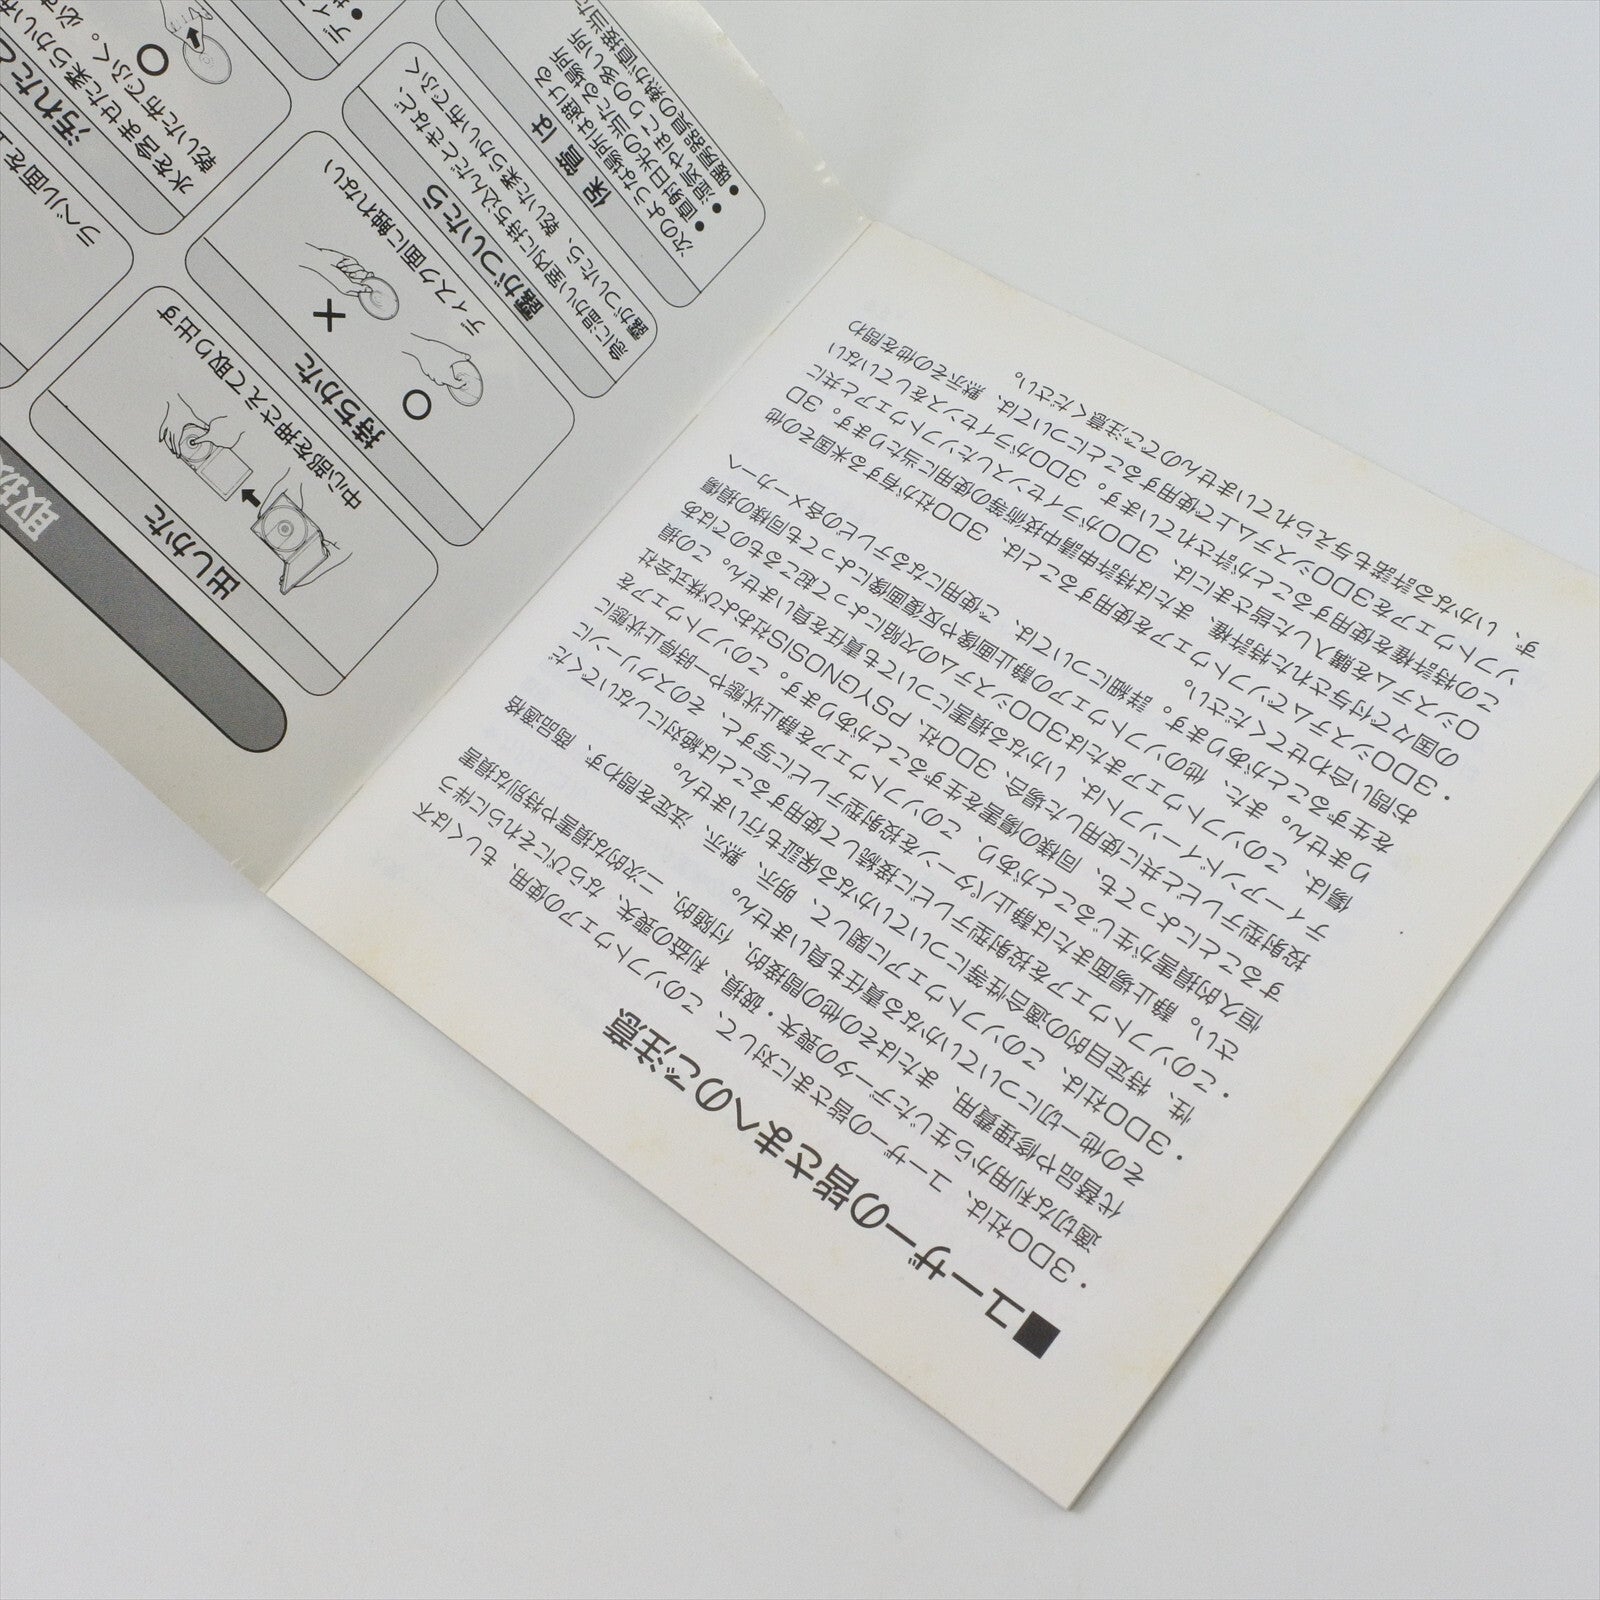 ■ユーザーの皆さまへのご注意
・3DO社は、ユーザーの皆さまに対して、このソフトウェアの使用、もしくは不
適切な利用から生じたデータの喪失・破損、利益の喪失、ならびにそれらに伴う
代替品や修理費用、またはその他の間接的、付随的、二次的な損害や特別な損害
その他一切についていかなる責任も負いません。
・3DO社は、このソフトウェアに関して、明示、黙示、法定を問わず、商品適格
性、特定目的の適合性等についていかなる保証も行いません。
・このソフトウェアを投射型テレビに接続して使用することは絶対にしないでくだ
さい。静止場面または静止パターンを投射型テレビに写すと、そのスクリーンに
恒久的損害が生じることがあり、このソフトウェアを静止状態や一時停止状態に
することによっても、同様の傷害を生ずることがあります。このソフトウェアを
投射型テレビと共に使用した場合、3DO社、PSYGNOSIS社および株式会社
ディーアンドイーソフトは、いかなる損害についても責任を負いません。この損
傷は、このソフトウェアまたは3DOシステムの欠陥によって起こるものではあ
りません。また、他のソフトウェアの静止画像や反復画像によっても同様の損傷
を生ずることがあります。詳細については、ご使用になるテレビの各メーカーへ
お問い合わせてください。
・3DOシステムでソフトウェアを使用することは、3DO社が有する米国その他
の国々で付与された特許権、または特許申請中技術等の使用に当たります。3D
Oシステムを購入した皆さまには、3DOがライセンスしたソフトウェアと共に
この特許権を使用することが許されています。3DOがライセンスをしていない
ソフトウェアを3DOシステム上で使用することについては、黙示その他を問わ
ず、いかなる許諾も与えられていませんのでご注意ください。
取扱
出しかた
中心部を押さえて取り出す
持ちかた
ディスク面に触れない
○
×
露がついたら
急に温かい室内に持ち込んだときなど、
露がついたら、乾いた柔らかい布でふく
保管は
次のような場所は避ける
●直射日光の当たる場所
●湿気やほこりの多い所
●暖房器具の熱が直接当た
ラベル面を上
汚れたと
水を含ませた柔らかい布
乾いた布でふく。必ず
○
ディス